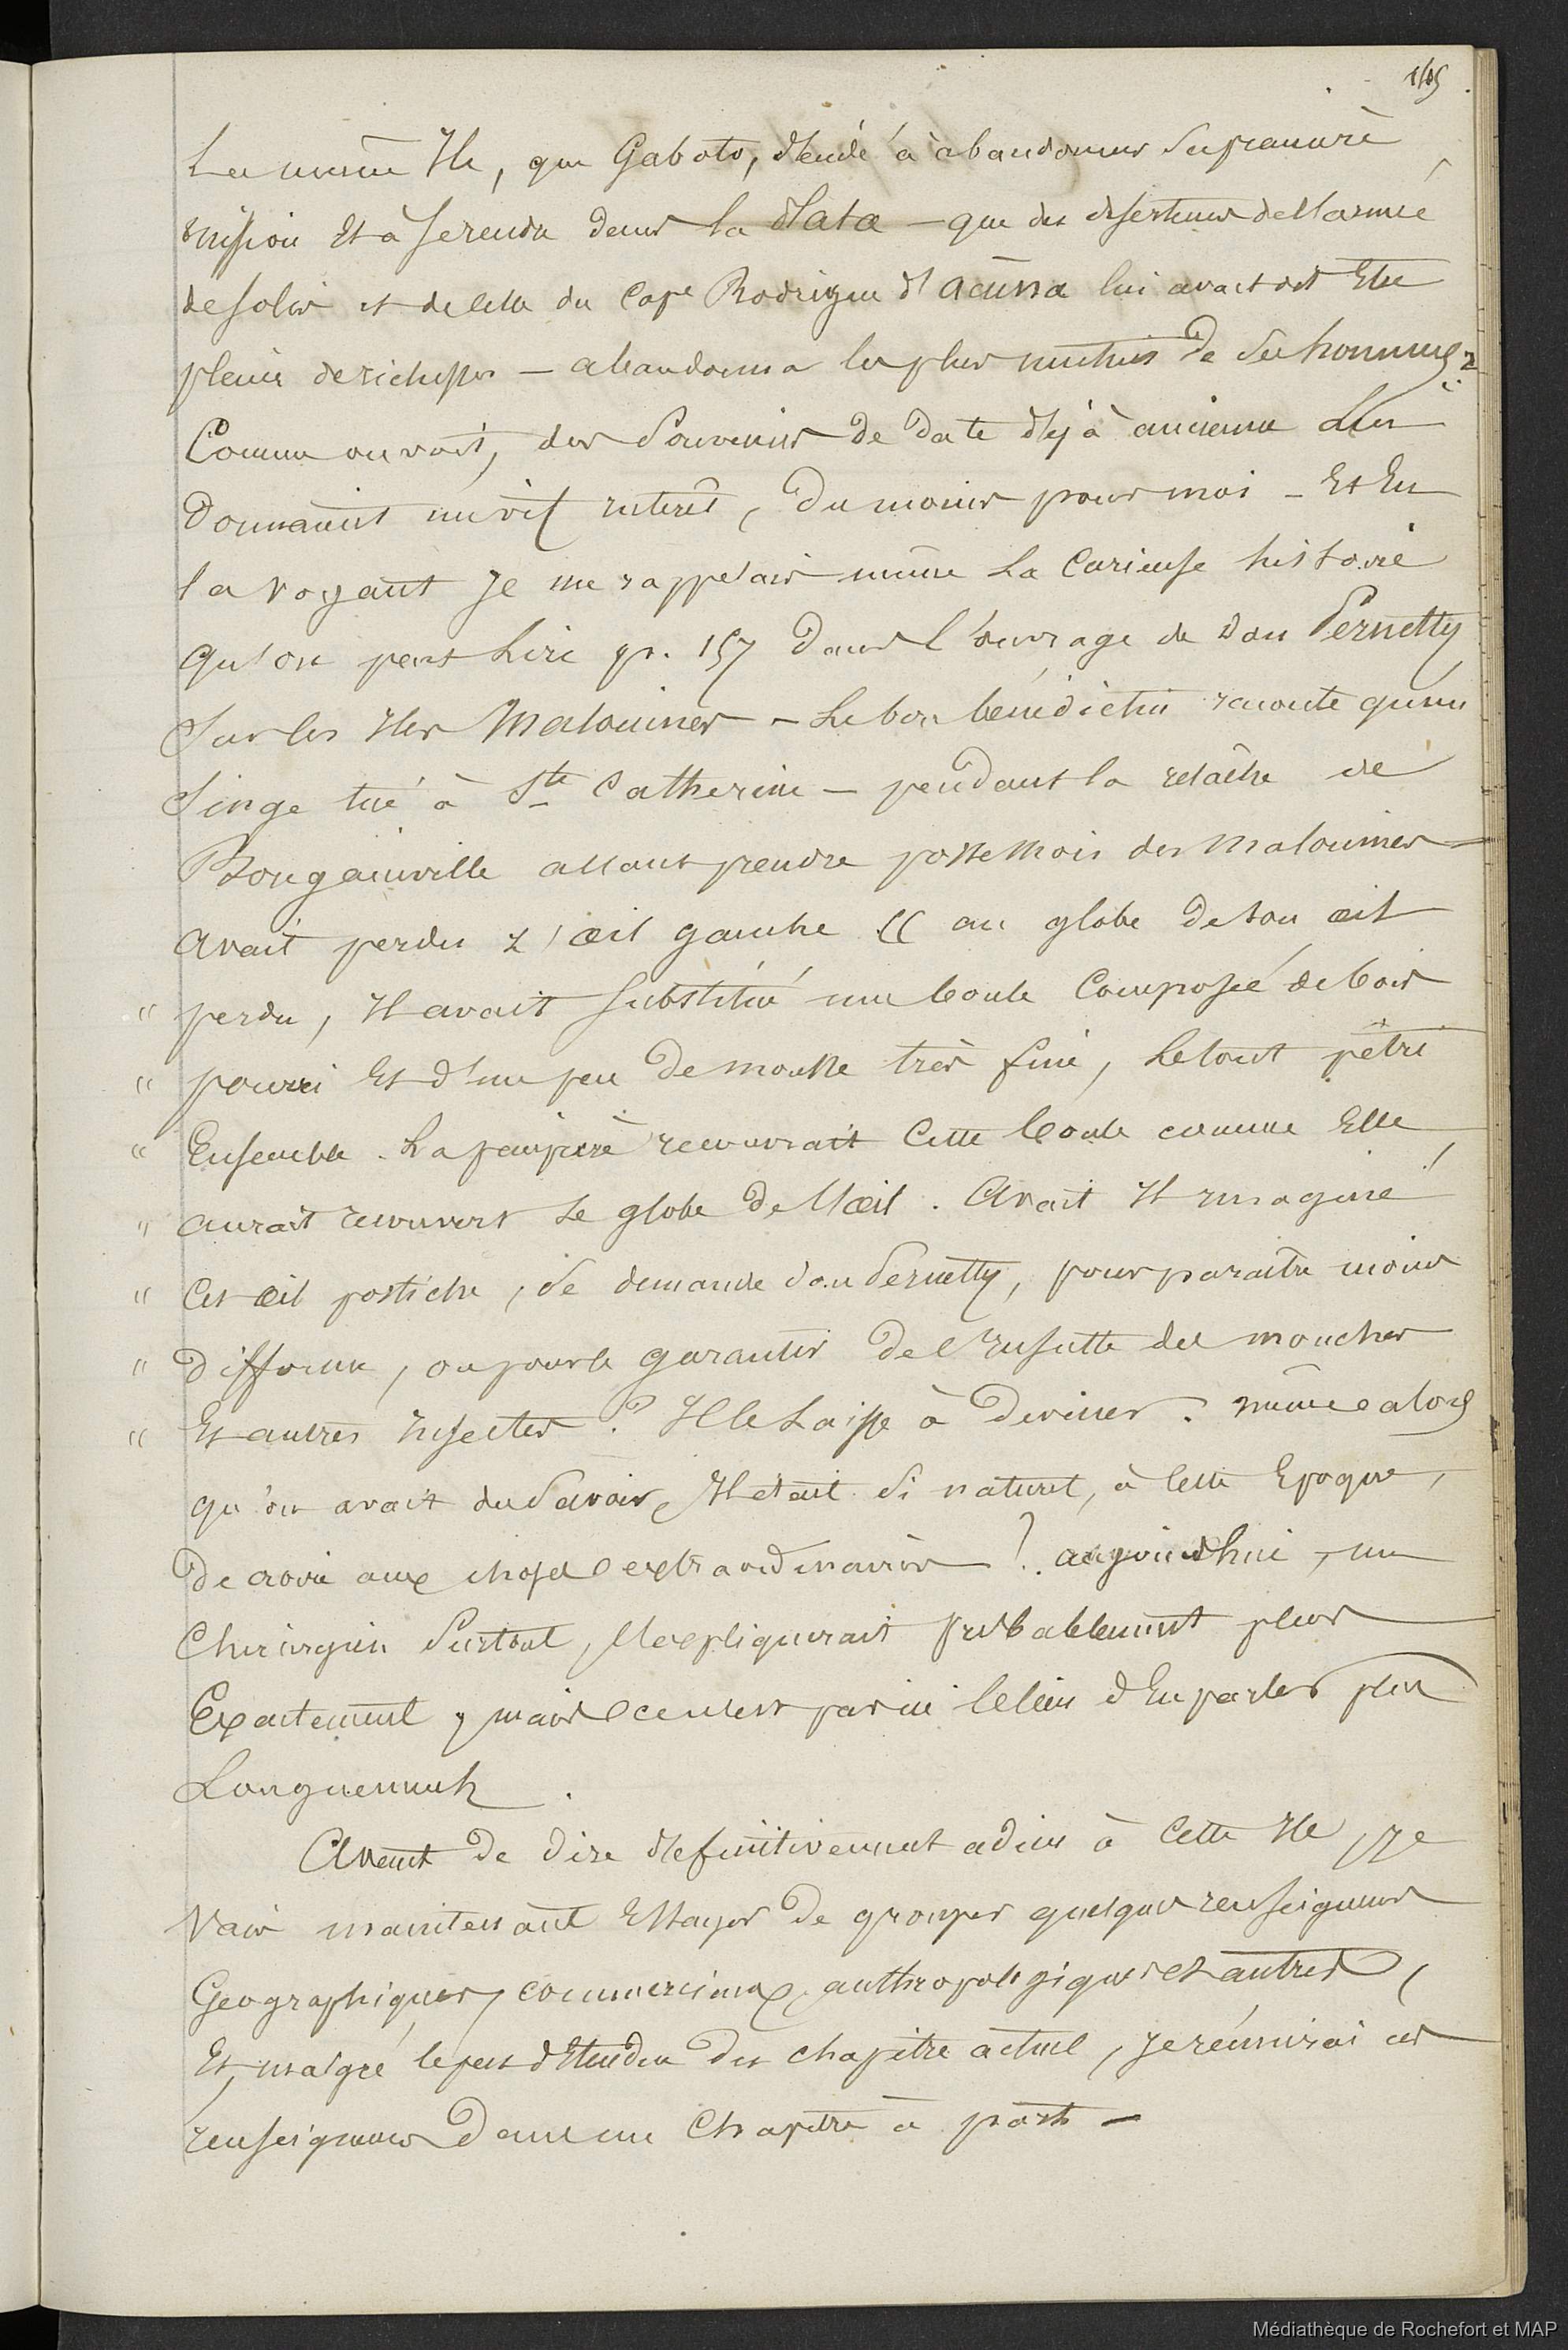 145
La même Ile, que Gaboto, décidé à abandonner sa première
mission et à se rendre dans la Plata — que des déserteurs de l'armée
de Solis et de celle du Cape Rodrigue d'Acûna lui avait dit Etre
pleine de richesses — abandonna les plus mutins de ses hommes.
Comme on voit, des Souvenirs de date déjà ancienne lui
donnaient un vif intérêt, du moins pour moi — Et En
la voyant je me rappelais même la Curieuse histoire
qu'on peut lire p. 157 dans l'ouvrage de Don Pernetty
Sur les Iles Malouines — Le bon bénédictin raconte qu'un
Singe tué à Ste Catherine — pendant la relâche de
Bougainville allant prendre possession des Malouines —
avait perdu l'œil gauche (( au globe de son œil
" perdu, Il avait substitué une boule Composée de bois
" pourri Et d'un peu de mousse très fine, le tout pétri
" Ensemble. La paupière recouvrait Cette boule comme Elle
" aurait recouvert le globe de l'œil. Avait Il Imaginé
" Cet œil postiche, se demande Don Pernetty, pour paraître moins
" difforme, ou pour le garantir de l'Insulte des mouches
" Et autres Insectes ? Il le Laisse à deviner. même alors
qu'on avait du Savoir, Il était Si naturel, à Cette Epoque,
De croire aux choses extraordinaires ! aujourd'hui, un
Chirurgien Surtout, l'expliquerait probablement plus
Exactement, mais ce n'est pas ici le lieu d'En parler plus
Longuement.
Avant de dire définitivement adieu à Cette Ile, je
Vais maintenant Essayer de grouper quelques renseignemts
Géographiques, commerciaux, anthropologiques et autres,
Et, malgré le peu d'Etendue du chapitre actuel, je réunirai ces
renseignemts dans un Chapitre à part —
Médiathèque de Rochefort et MAP